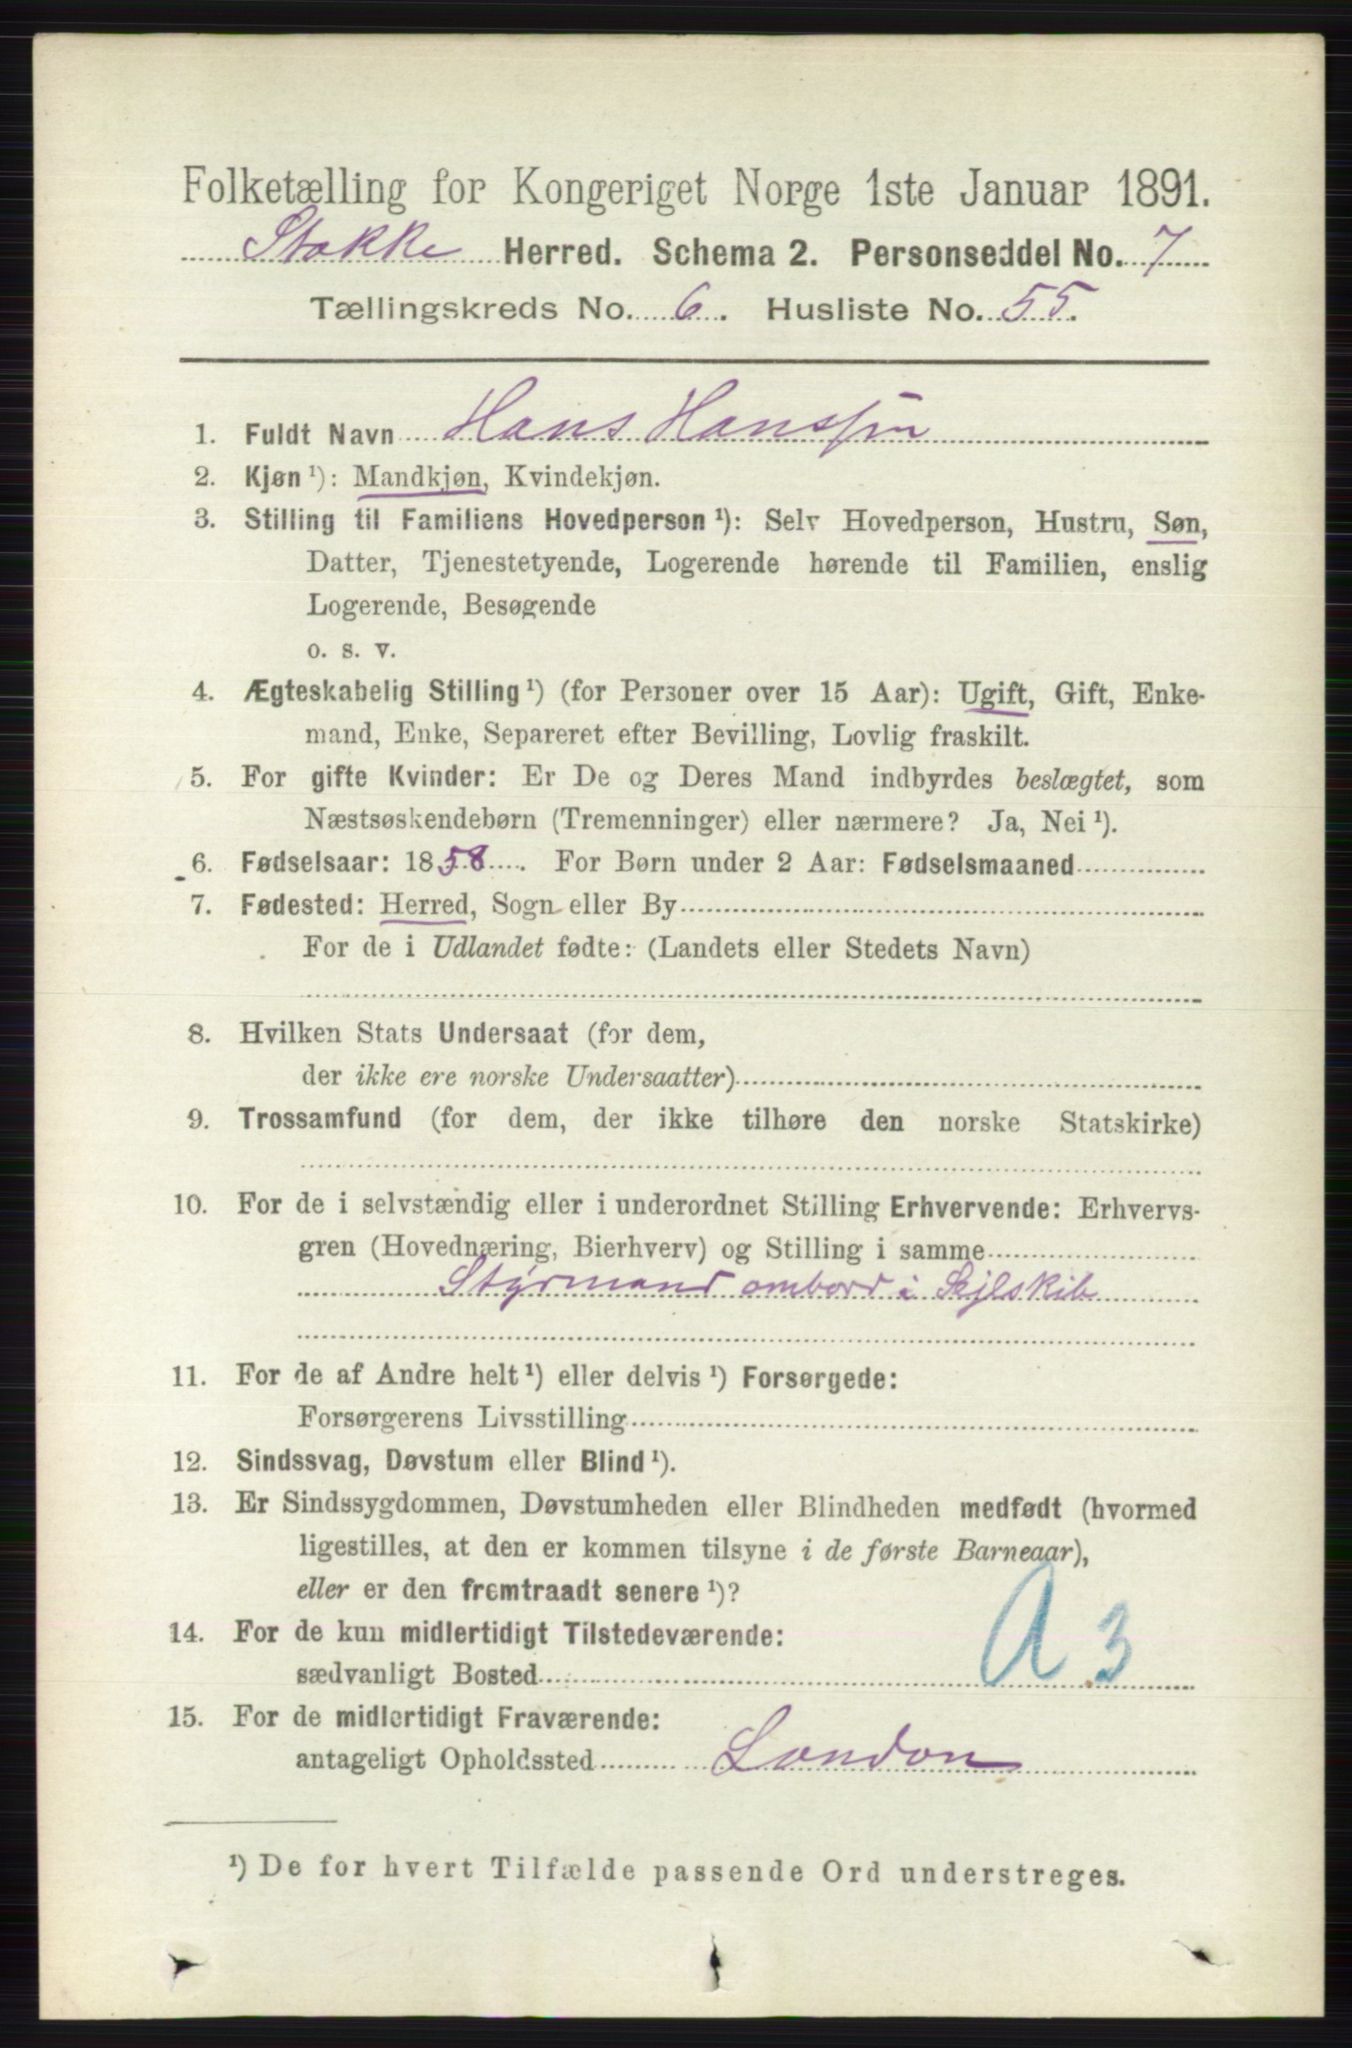 Folketælling for Kongeriget Norge 1ste Januar 1891.
Stokke Herred. Schema 2. Personseddel No. 7
Tællingskreds No. 6. Husliste No. 55.
1. Fuldt Navn Hans Hanssen
2. Kjøn ¹): Mandkjøn, Kvindekjøn.
3. Stilling til Familiens Hovedperson ¹): Selv Hovedperson, Hustru, Søn,
Datter, Tjenestetyende, Logerende hørende til Familien, enslig
Logerende, Besøgende
o. s. v.
4. Ægteskabelig Stilling ¹) (for Personer over 15 Aar): Ugift, Gift, Enke-
mand, Enke, Separeret efter Bevilling, Lovlig fraskilt.
5. For gifte Kvinder: Er De og Deres Mand indbyrdes beslægtet, som
Næstsøskendebørn (Tremenninger) eller nærmere? Ja, Nei ¹).
6. Fødselsaar: 1858. For Børn under 2 Aar: Fødselsmaaned
7. Fødested: Herred, Sogn eller By
For de i Udlandet fødte: (Landets eller Stedets Navn)
8. Hvilken Stats Undersaat (for dem,
der ikke ere norske Undersaatter)
9. Trossamfund (for dem, der ikke tilhøre den norske Statskirke)
10. For de i selvstændig eller i underordnet Stilling Erhvervende: Erhvervs-
gren (Hovednæring, Bierhverv) og Stilling i samme
Styrmand ombord i Sejlskib
11. For de af Andre helt ¹) eller delvis ¹) Forsørgede:
Forsørgerens Livsstilling
12. Sindssvag, Døvstum eller Blind ¹).
13. Er Sindssygdommen, Døvstumheden eller Blindheden medfødt (hvormed
ligestilles, at den er kommen tilsyne i de første Barneaar),
eller er den fremtraadt senere ¹)?
14. For de kun midlertidigt Tilstedeværende:
sædvanligt Bosted
A 3
15. For de midlertidigt Fraværende:
antageligt Opholdssted London
¹) De for hvert Tilfælde passende Ord understreges.